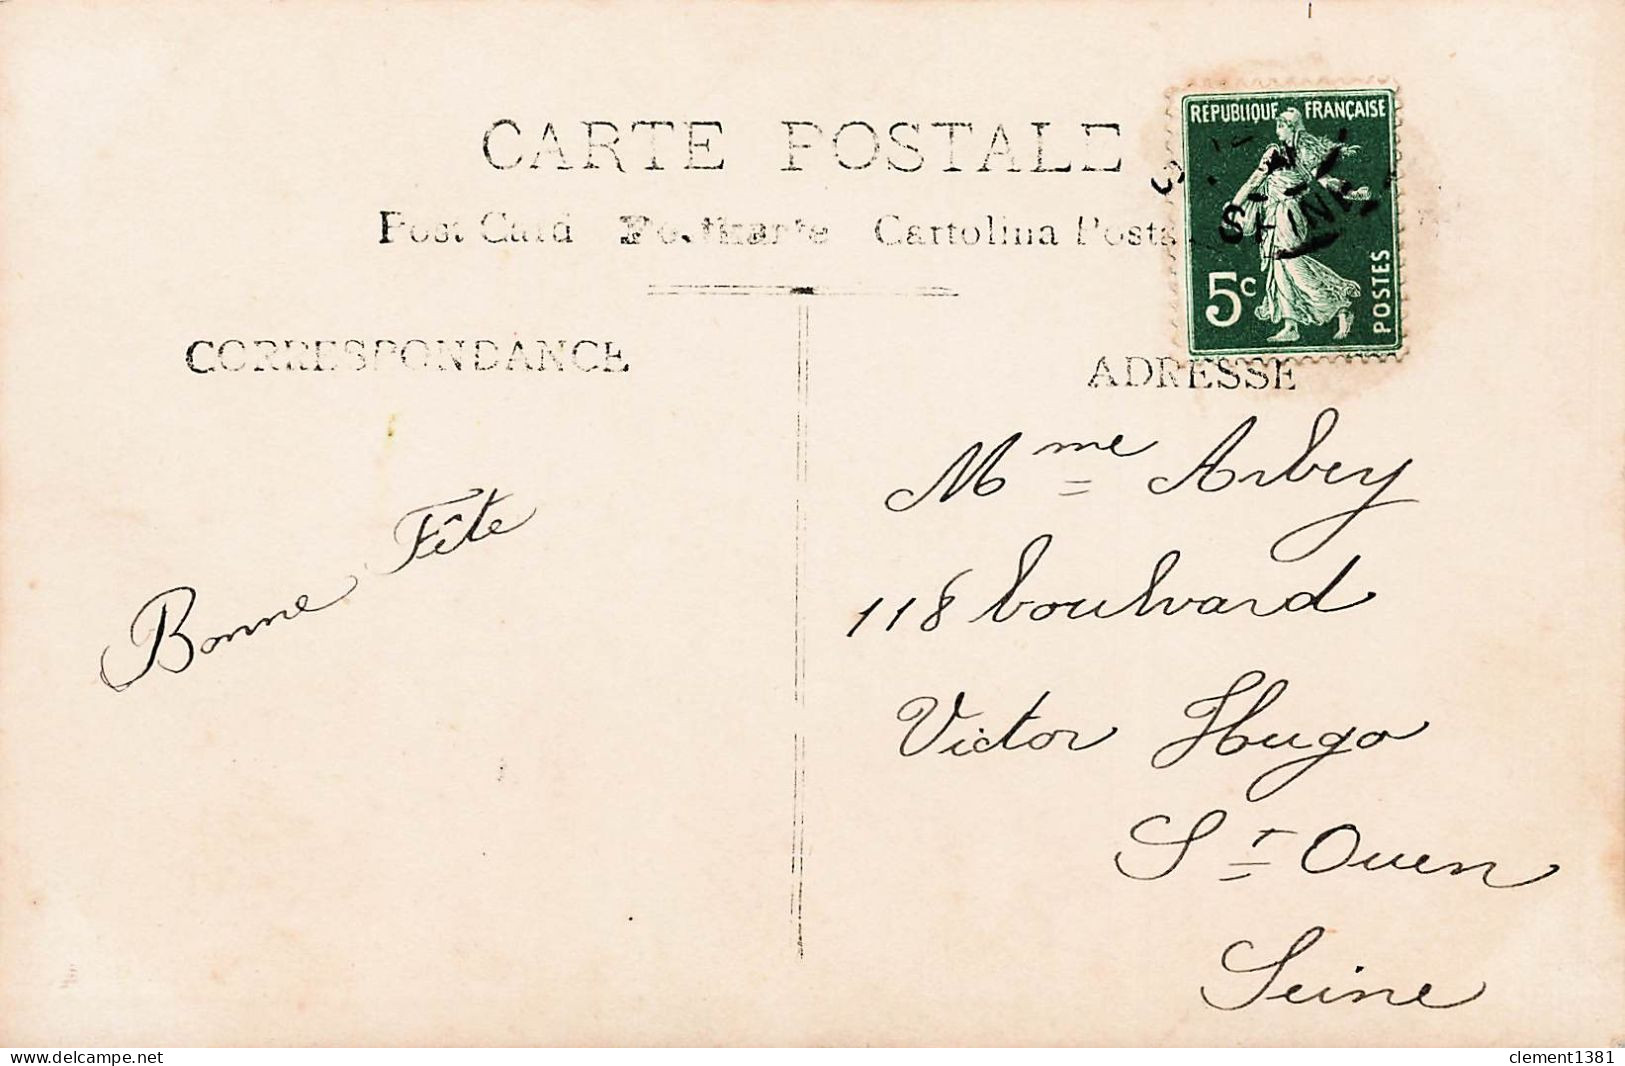 CARTE POSTALE
Post Card Postkarte Cartolina Posta
RÉPUBLIQUE FRANÇAISE
SEINE
5c
POSTES
CORRESPONDANCE
ADRESSE
Bonne Fête
Mme Arbey
118 boulvard
Victor Hugo
St Ouen
Seine
clement1381